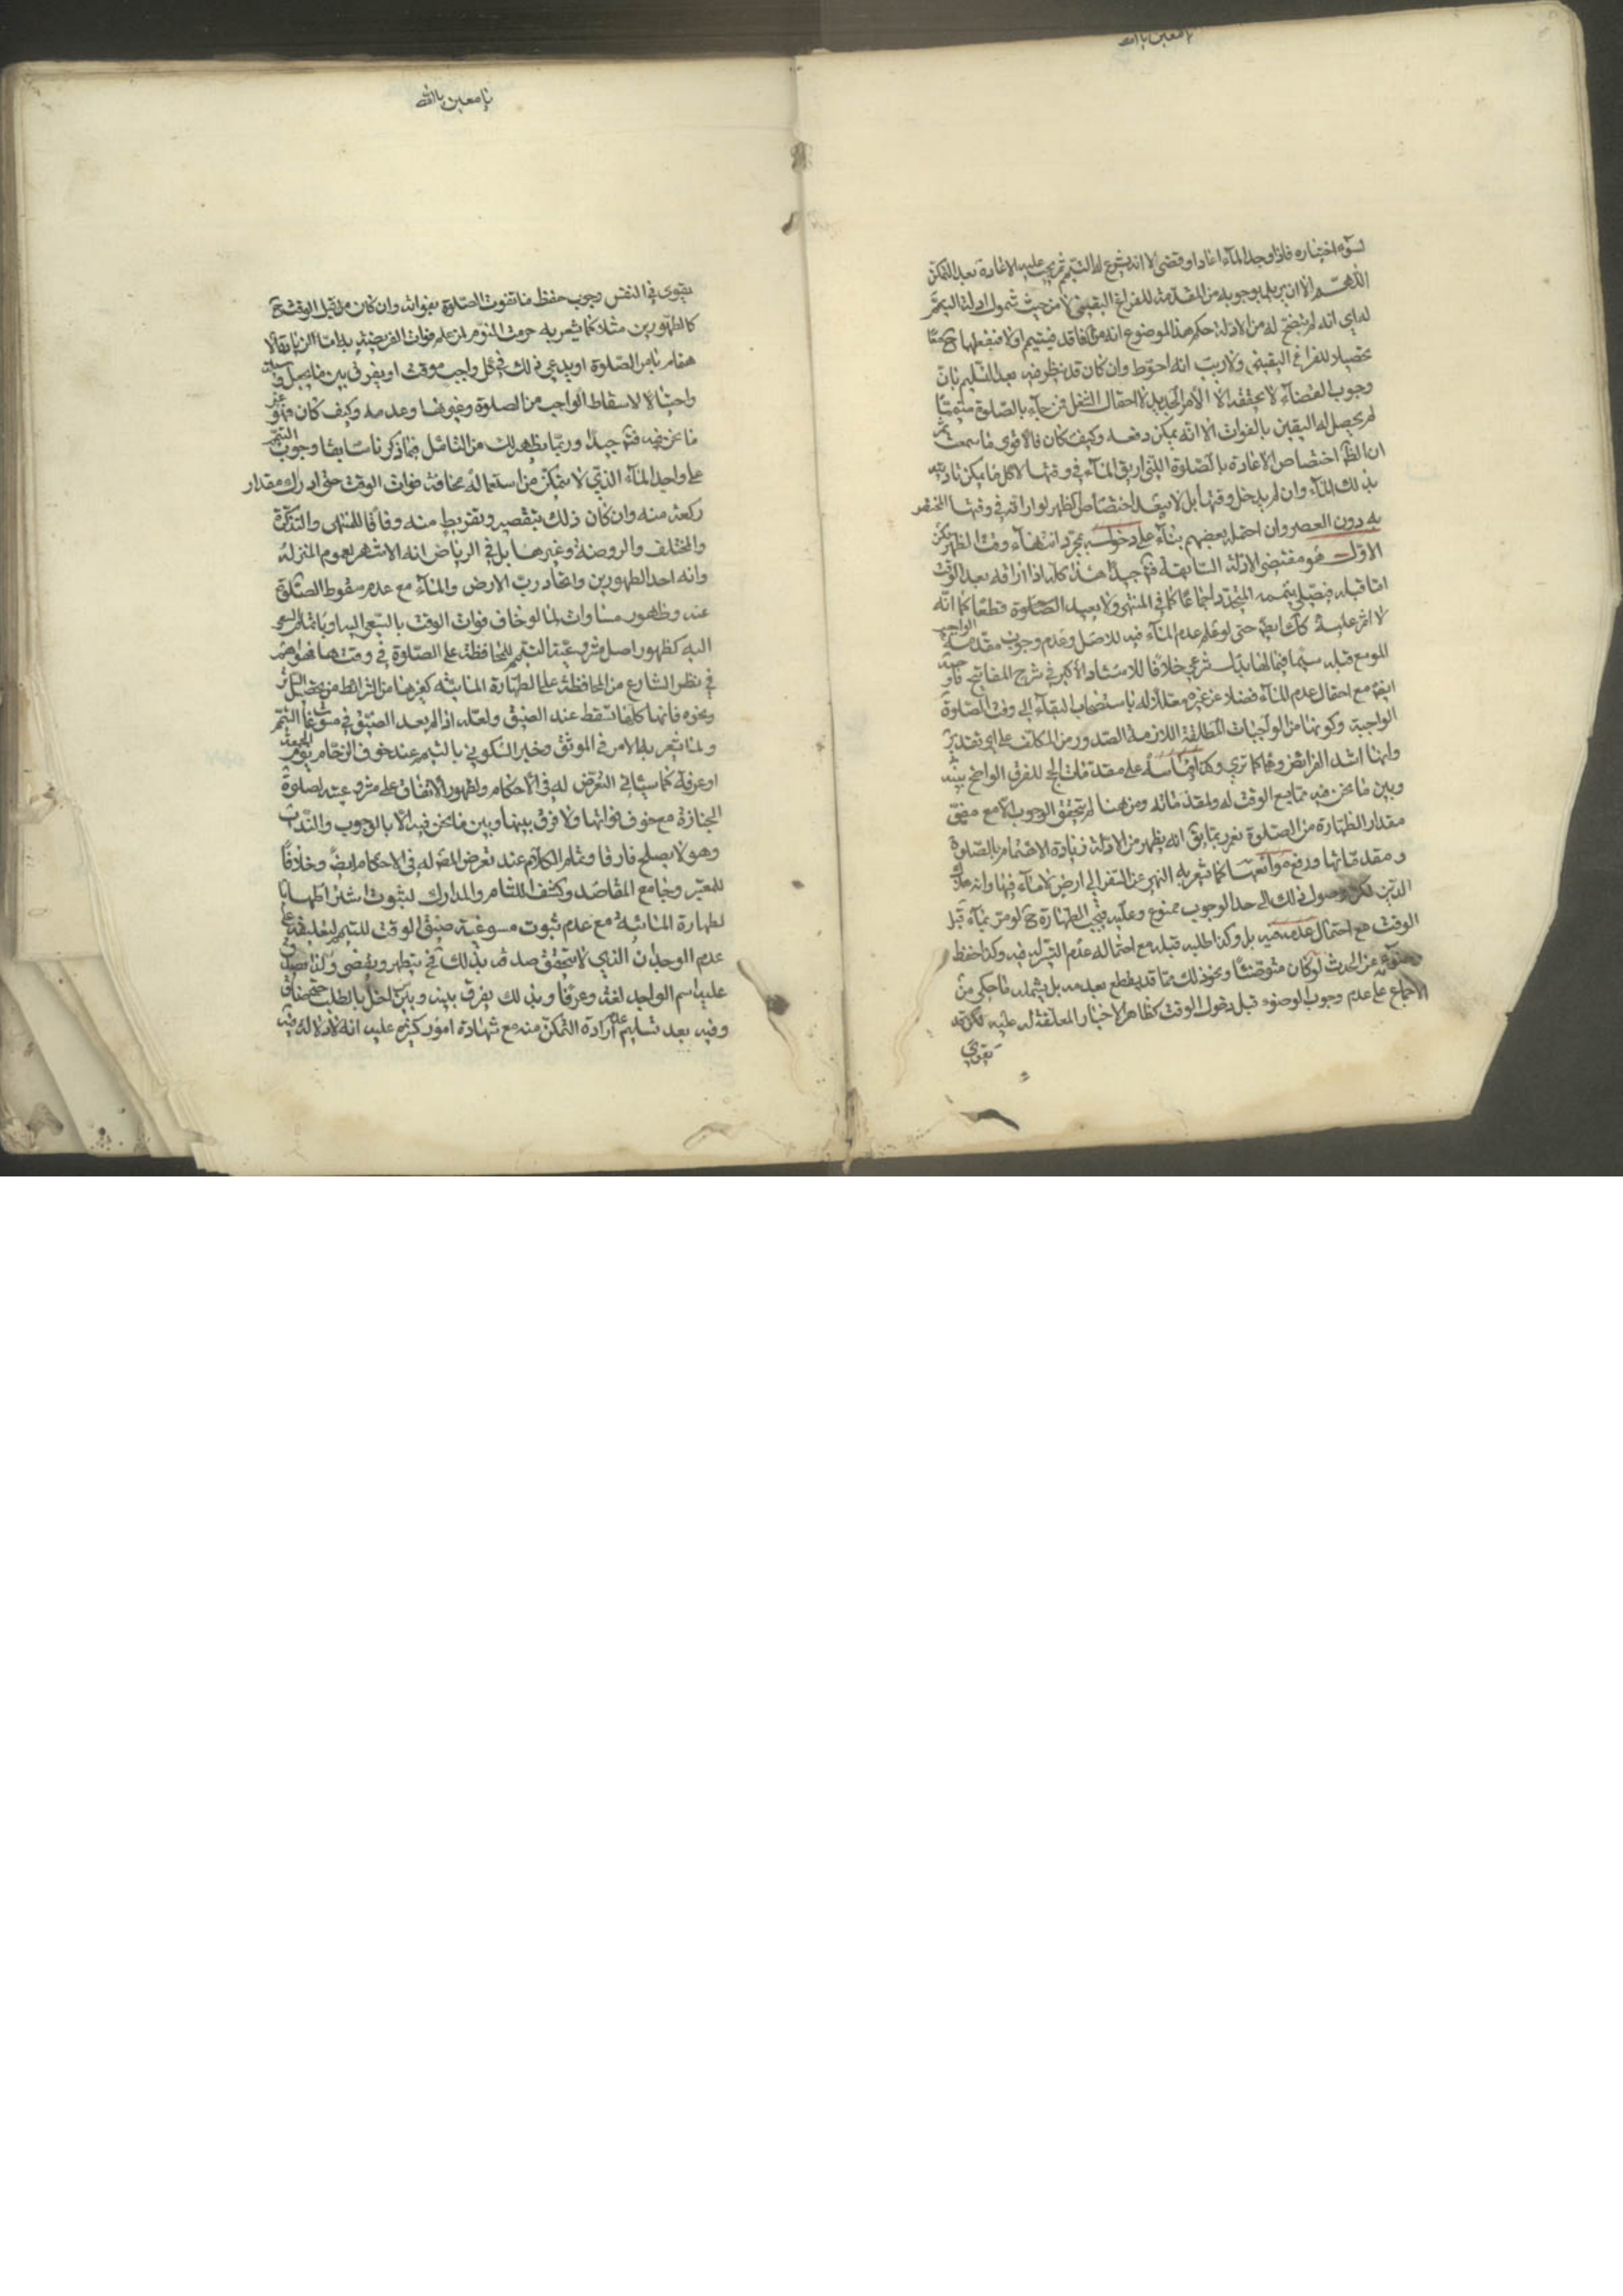 يا معين يا الله
لسوء اختياره فاذا وجد الماء اعاد او قضى لا انه يشرع له التيمم ثم يجب عليه الاعادة بعد التمكن
اللهم الا ان يريد بوجوبه من المقدمة للفراغ اليقيني لا من حيث شمول ادلة التيمم
له اي انه لم يتضح له من الادلة حكم هذا الموضوع انه من الفاقد فيتيمم او لا فيفعلهما ح
تحصيلا للفراغ اليقيني ولا ريب انه احوط وان كان قد ينظر فيه بعد التسليم بان
وجوب القضاء لا يحققه الا الأمر الجديد لاحتمال فمن جاء بالصلوة متيمما
لم يحصل له اليقين بالفوات الا انه يمكن دفعه وكيف كان فالاقوى ما سمعت ثم
ان الظ اختصاص الاعادة بالصلوة التي اريق الماء في وقتها لا كل ما يمكن تاديته
بذلك الماء وان لم يدخل وقتها بل لا يبعد اختصاص الظهر لو اراقه في وقتها المختص
به دون العصر وان احتمله بعضهم بناء على دخوله بمجرد انتهاء وقت الظهر لكن
الاول هو مقتضى الادلة السابقة فتأمل جيدا هذا كله اذا اراقه بعد الوقت
اما قبله فيصلي بتيممه المتجدد اجماعا كما في المنتهى ولا يعيد الصلوة قطعا كما انه
لا اثم عليه كذلك ايضا حتى لو علم عدم الماء فيه للاصل وعدم وجوب مقدمة الواجب
الموسع قبله سيما فيما لها بدل شرعي خلافا للاستاد الأكبر في شرح المفاتيح فاوجبه
ايضا مع احتمال عدم الماء فضلا عن غيره معللا له باستصحاب البقاء الى وقت الصلوة
الواجبة وكونها من الواجبات المطلقة اللازمة الصدور من المكلف على اي تقدير
وانها اشد الفرائض وهما كما ترى وكذا قياسه على مقدمات الحج للفرق الواضح بينه
وبين ما نحن فيه مما يسع الوقت له ولمقدماته ومن هنا لم يتحقق الوجوب الا مع مضي
مقدار الطهارة من الصلوة نعم ربما يق انه يظهر من الادلة زيادة الاهتمام بالصلوة
ومقدماتها ورفع موانعها كما يشعر به النهي عن السفر الى ارض لا ماء فيها وانه هلاك
الدين لكن وصول ذلك الى حد الوجوب ممنوع وعليه فيجب الطهارة ح لو مر بماء قبل
الوقت مع احتمال عدمه فيه بل وكذا طلبه قبله مع احتماله عدم التيسر له فيه وكذا حفظ
وضوئه عن الحدث لو كان متوضئا ونحو ذلك مما قد يقطع بعدمه بل يشمله ما حكى من
الاجماع على عدم وجوب الوضوء قبل دخول الوقت كظاهر الاخبار المعلقة له عليه لكن قد
يقوى
يا معين يا الله
يقوى في النفس وجوب حفظ ما تفوت الصلوة بفواته وان كان من قبل الوقت ح
كالطهورين مثلا كما يشعر به حرمة النوم لمن علم فوات الفريضة به اما الزيادة
اهتمام بامر الصلوة او يدعى ذلك في كل واجب موقت او يفرق بين ما يجعل وسيلة
واحتيالا لاسقاط الواجب من الصلوة وغيرها وعدمه وكيف كان فهو غير
ما نحن فيه فتأمل جيدا وربما يظهر لك من التأمل فيما ذكرنا سابقا وجوب التيمم
على واجد الماء الذي لا يتمكن من استعماله مخافة فوات الوقت حتى ادراك مقدار
ركعة منه وان كان ذلك بتقصير وتفريط منه وفاقا للمنتهى والتذكرة
والمختلف والروضة وغيرها بل في الرياض انه الاشهر لعموم المنزلة
وانه احد الطهورين واتحاد رب الارض والماء مع عدم سقوط الصلوة
عنه وظهور مساواته لما لو خاف فوات الوقت بالسعي اليه
اليه كظهور اصل مشروعية التيمم للمحافظة على الصلوة في وقتها فهو اهم
في نظر الشارع من المحافظة على الطهارة المائية كغيرها من الشرائط من تحصيل الساتر
ونحوه فانها كلها تسقط عند الضيق ولعله اذا لم يعد الضيق في مسوغات التيمم
ولما يشعر به الامر في الموثق وخبر السكوني بالتيمم عند خوف الزحام يوم الجمعة
او عرفة كما سيأتي التعرض له في الأحكام ولظهور الاتفاق على مشروعيته لصلوة
الجنازة مع خوف فواتها ولا فرق بينها وبين ما نحن فيه الا بالوجوب والندب
وهو لا يصلح فارقا وتمام الكلام عند تعرض المصنف له في الاحكام ايضا وخلافا
للمعتبر وجامع المقاصد وكشف اللثام والمدارك لثبوت اشتراطها با
لطهارة المائية مع عدم ثبوت مسوغية ضيق الوقت للتيمم لتعليقه على
عدم الوجدان الذي لا يتحقق صدقه بذلك فح يتطهر ويقضي ولذا يصدق
عليه اسم الواجد لغة وعرفا وبذلك يفرق بينه وبين من اخل بالطلب حتى ضاق
وفيه بعد تسليم عدم ارادة التمكن منه مع شهادة امور كثيرة عليه انه لا دلالة فيه